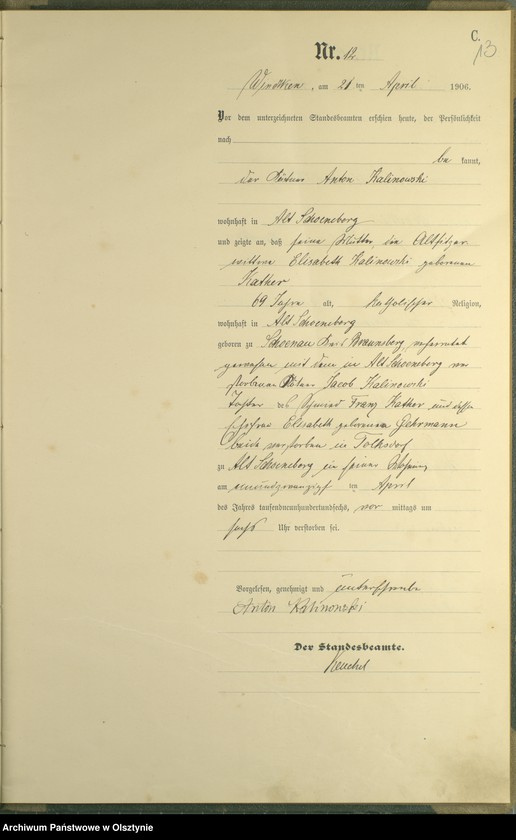 C.
13
Nr. 12
am 21 ten April 1906.
Vor dem unterzeichneten Standesbeamten erschien heute, der Persönlichkeit
nach
be kannt,
der Kätner Anton Kalinowski
wohnhaft in Alt Schoeneberg
und zeigte an, daß seine Mutter, die Altsitzer
wittwe Elisabeth Kalinowski geborenen
Kather
69 Jahre alt, katholischer Religion,
wohnhaft in Alt Schoeneberg
geboren zu Schoenau Kreis Braunsberg, verheiratet
gewesen mit dem in Alt Schoeneberg ver
storbenen Kätner Jacob Kalinowski
Tochter des Schmied Franz Kather und dessen
Ehefrau Elisabeth geborenen Gehrmann
beide verstorben in Tolksdorf
zu Alt Schoeneberg in seiner Wohnung
am einundzwanzigsten April
des Jahres tausendneunhundertundsechs, vor mittags um
sechs Uhr verstorben sei.
Vorgelesen, genehmigt und unterschrieben
Anton Kalinowski
Der Standesbeamte.
Archiwum Państwowe w Olsztynie